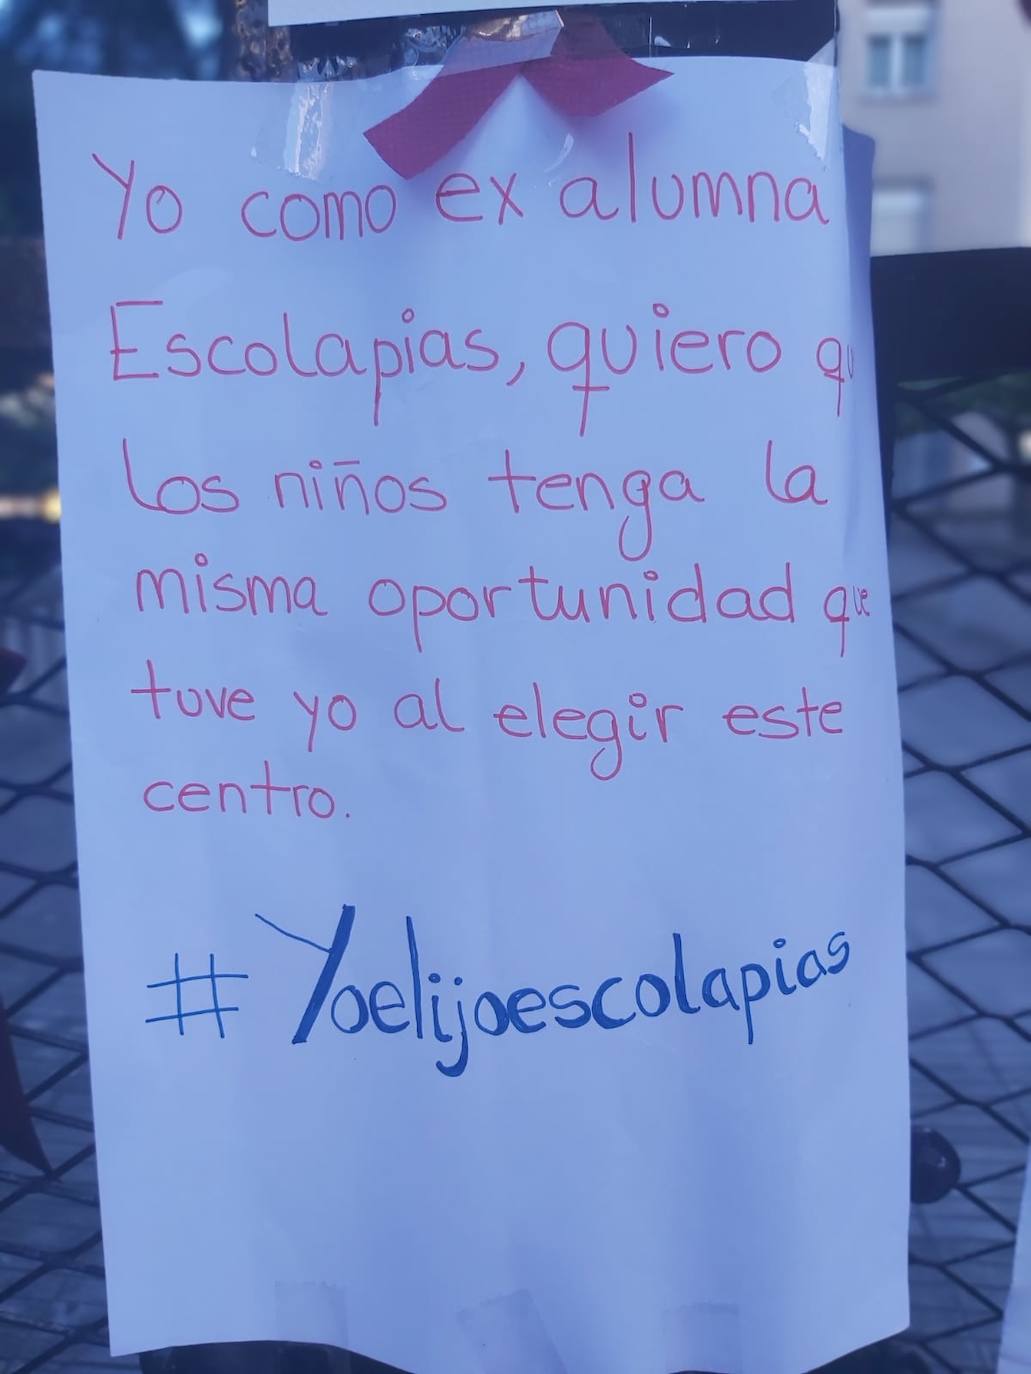 Yo como ex alumna
Escolapias, quiero qu
los niños tenga la
misma oportunidad que
tuve yo al elegir este
centro.
# Yoelijoescolapias